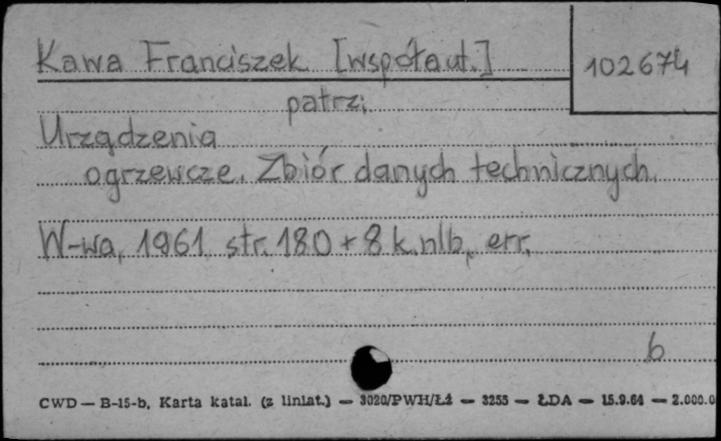 Kawa Franciszek [współaut.]
102674
patrz:
Urządzenia
ogrzewcze. Zbiór danych technicznych.
W-wa, 1961 str. 180 + 8 k. nlb, err.
b
CWD — B-15-b, Karta katal. (z liniat.) — 3020/PWH/Łź — 3255 — ŁDA — 15.9.64 — 2.000.0